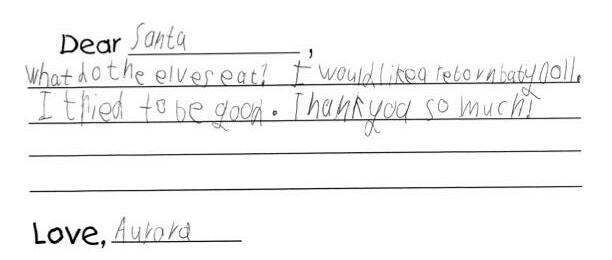 Dear Santa,
What do the elves eat? I would like a reborn baby doll.
I tried to be good. Thank you so much!
Love, Aurora